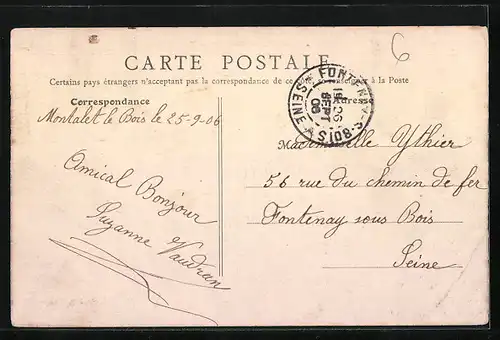 6
CARTE POSTALE
Certains pays étrangers n'acceptant pas la correspondance de ce côté, se renseigner à la Poste
Correspondance
Adresse
FONTENAY-S-BOIS
SEINE
26
SEPT
06
Montalet le Bois le 25-9-06
Amical Bonjour
Suzanne Vaudran
Mademoiselle Ythier
56 rue du chemin de fer
Fontenay sous Bois
Seine